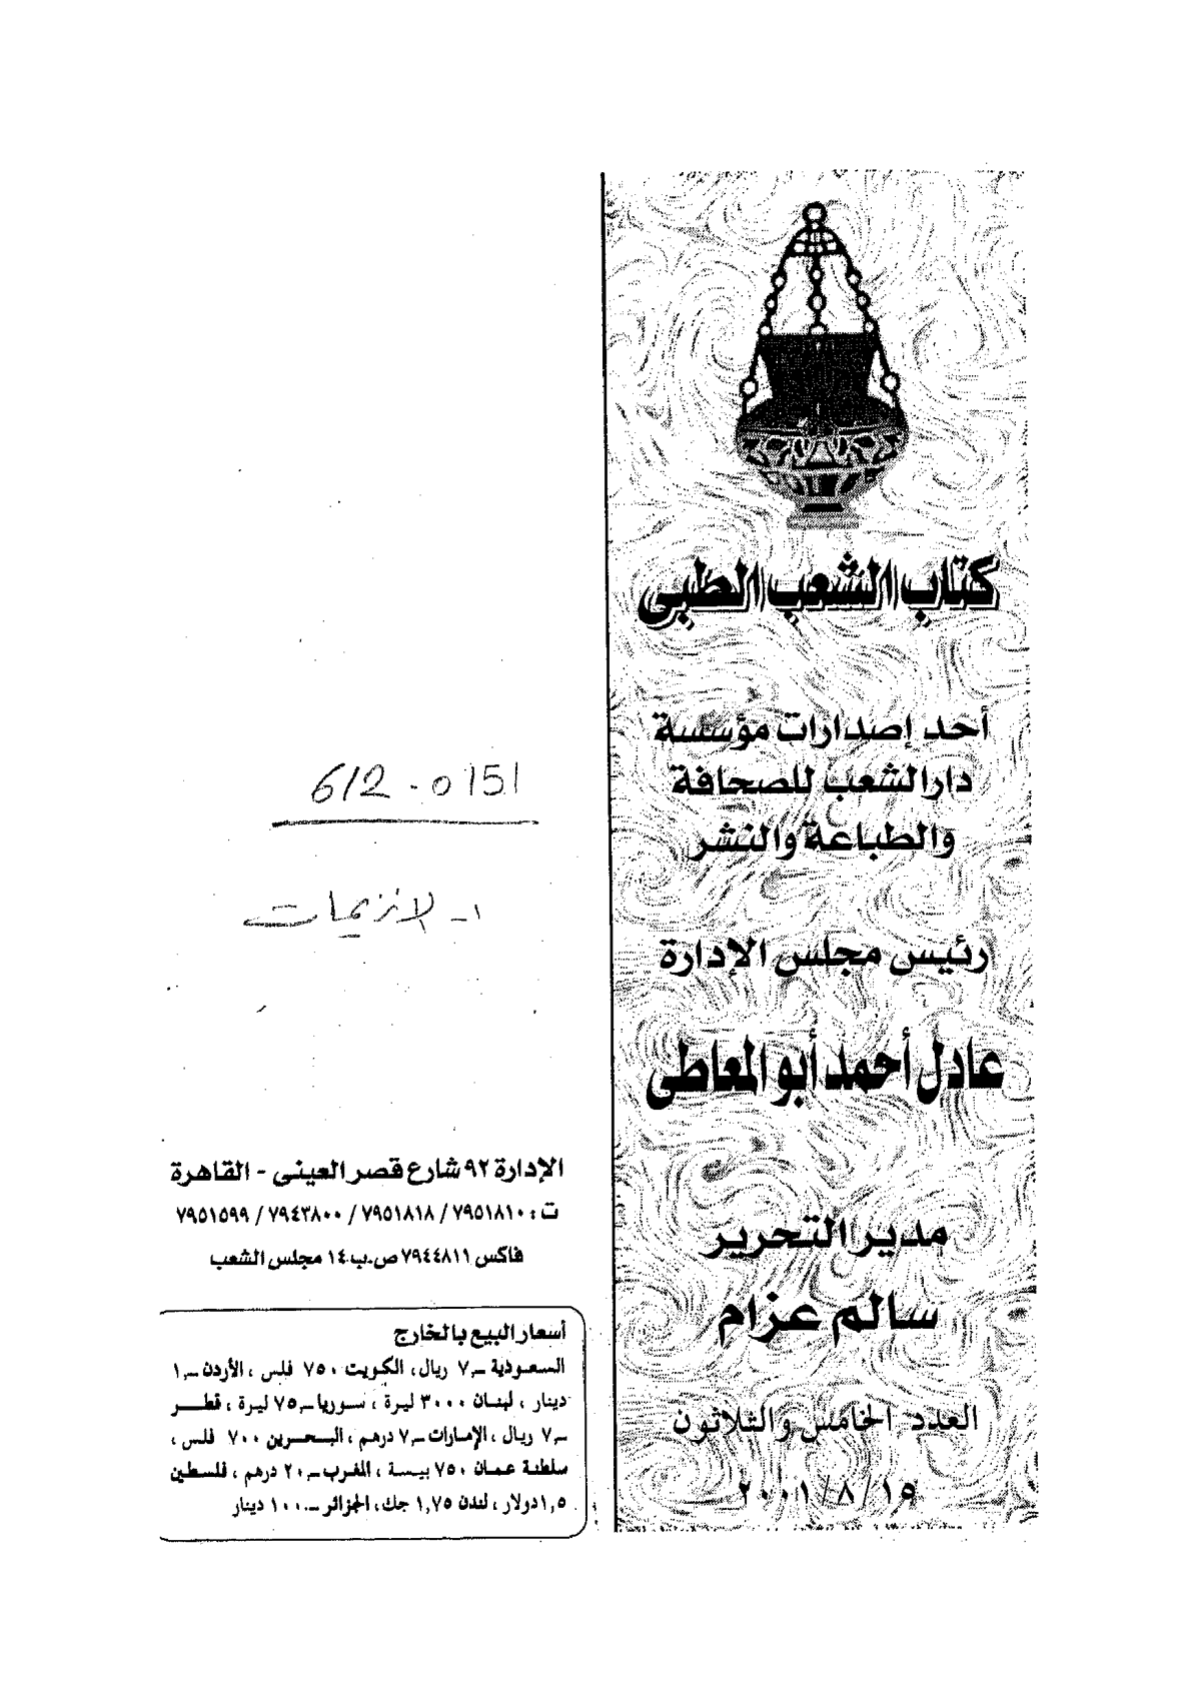 كتاب الشعب الطبى
أحد إصدارات مؤسسة
دار الشعب للصحافة
والطباعة والنشر
رئيس مجلس الإدارة
عادل أحمد أبو المعاطى
مدير التحرير
سالم عزام
العدد الخامس والثلاثون
١٥/ ٨ /٢٠٠١
612.0151
١- الانزيمات
الإدارة ٩٢ شارع قصر العينى - القاهرة
ت : ٧٩٥١٨١٠ / ٧٩٥١٨١٨ / ٧٩٤٣٨٠٠ / ٧٩٥١٥٩٩
فاكس ٧٩٤٤٨١١ ص.ب ١٤ مجلس الشعب
أسعار البيع بالخارج
السعودية ٧ر- ريال، الكويت ٧٥٠ فلس ، الأردن ١ر-
دينار ، لبنان ٣٠٠٠ ليرة ، سوريا ٧٥ر- ليرة ، قطر
٧ر- ريال ، الإمارات ٧ر- درهم ، البحرين ٧٠٠ فلس ،
سلطنة عمان ٧٥٠ بيسة ، المغرب ٢٠ر- درهم ، فلسطين
١,٥ دولار ، لندن ١,٧٥ جك ، الجزائر ١٠٠ر- دينار